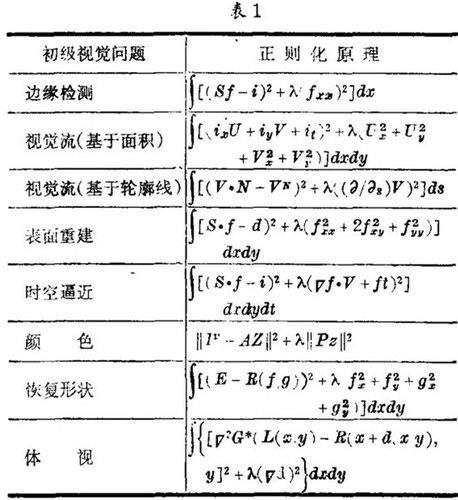 表1
初级视觉问题 正则化原理
边缘检测 ∫[(Sf-i)²+λ(f_xx)²]dx
视觉流(基于面积) ∫[(i_xU+i_yV+i_t)²+λ(U²_x+U²_y
+V²_x+V²_y)]dxdy
视觉流(基于轮廓线) ∫[(V•N-V^N)²+λ((∂/∂_s)V)²]ds
表面重建 ∫[S•f-d)²+λ(f²_xx+2f²_xy+f²_yy)]
dxdy
时空逼近 ∫[(S•f-i)²+λ(∇f•V+ft)²]
dxdydt
颜 色 ‖I^ν-AZ‖²+λ‖Pz‖²
恢复形状 ∫[(E-R(f,g))²+λ(f²_x+f²_y+g²_x
+g²_y)]dxdy
体 视 ∫{[∇²G*(L(x,y)-R(x+d,x,y),
y]²+λ(∇d)²}dxdy